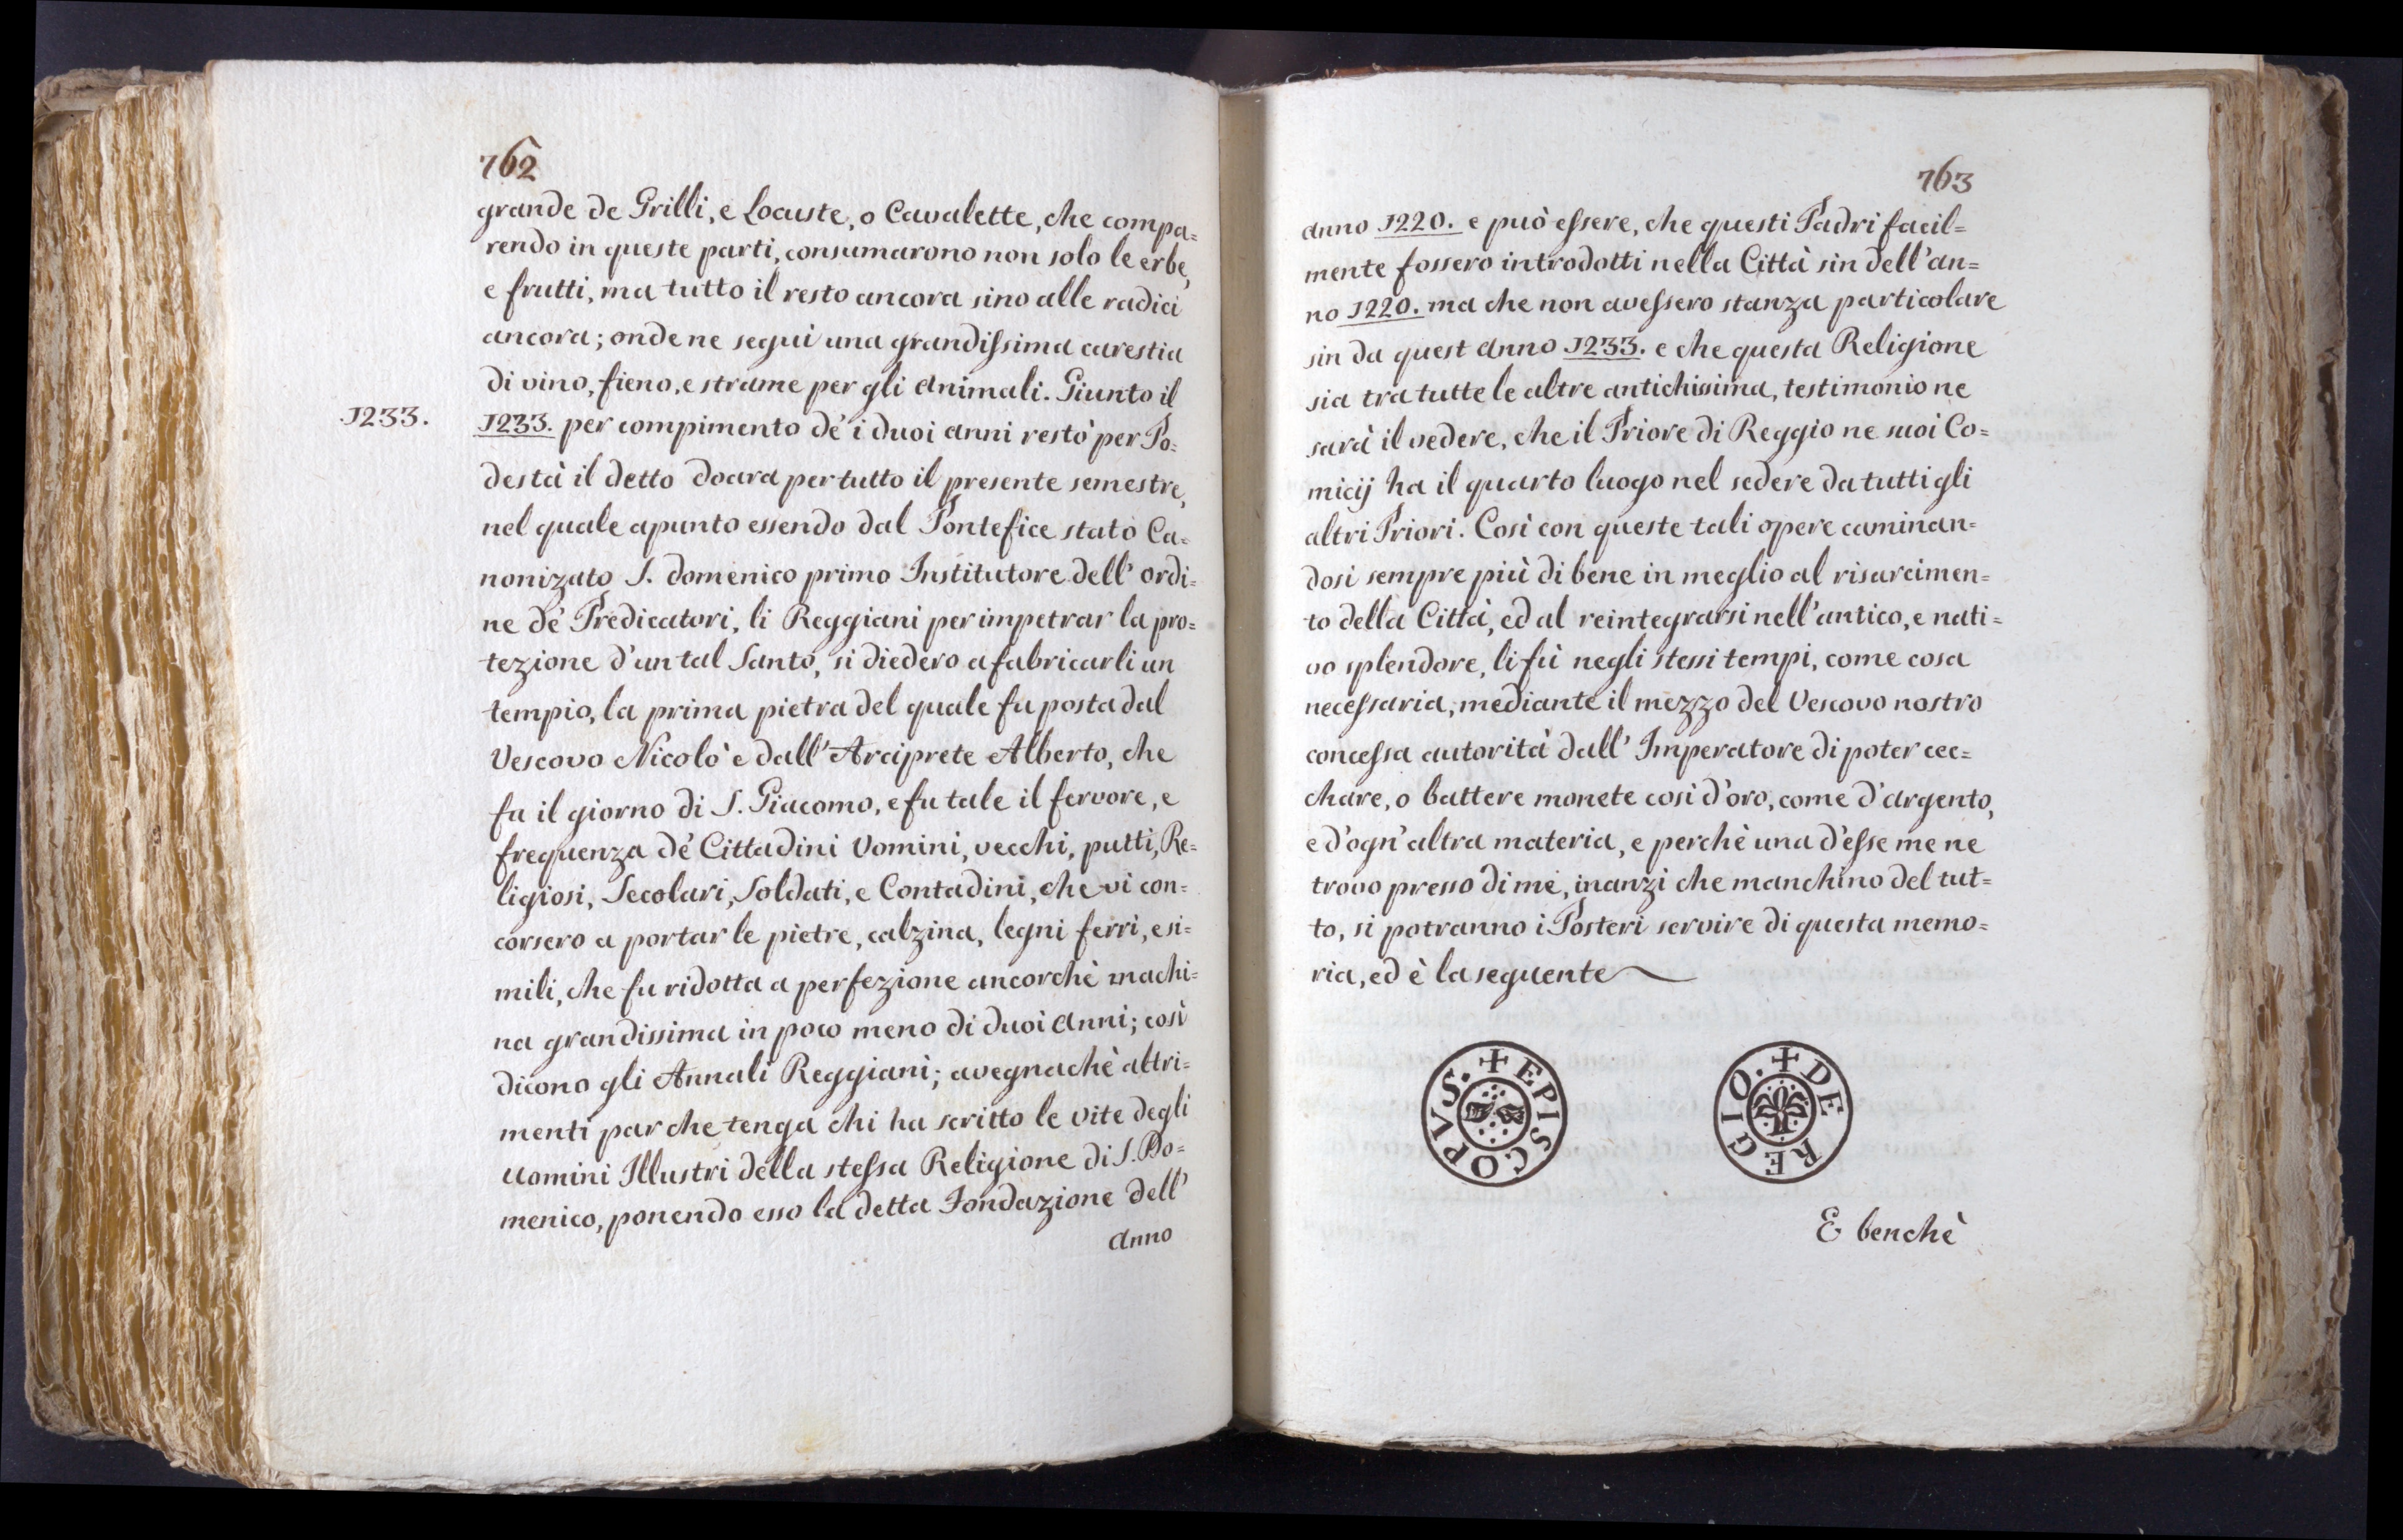 762
grande de Grilli, e Locuste, o Cavalette, che compa=
rendo in queste parti, consumarono non solo le erbe,
e frutti, ma tutto il resto ancora sino alle radici
ancora; onde ne seguì una grandissima carestia
di vino, fieno, e strame per gli animali. Giunto il
1233.
1233. per compimento de' i duoi anni restò per Po=
destà il detto doara per tutto il presente semestre,
nel quale apunto essendo dal Pontefice stato Ca=
nonizato S. domenico primo Institutore dell' ordi=
ne de' Predicatori, li Reggiani per impetrar la pro=
tezione d'un tal Santo, si diedero a fabricarli un
tempio, la prima pietra del quale fu posta dal
Vescovo Nicolò e dall' Arciprete Alberto, che
fu il giorno di S. Giacomo, e fu tale il fervore, e
frequenza de' Cittadini Uomini, vecchi, putti, Re=
ligiosi, Secolari, Soldati, e Contadini, che vi con=
corsero a portar le pietre, calzina, legni ferri, e si=
mili, che fu ridotta a perfezione ancorchè machi=
na grandissima in poco meno di duoi anni; così
dicono gli Annali Reggiani; avegnachè altri=
menti par che tenga chi ha scritto le vite degli
uomini Illustri della stessa Religione di S. Do=
menico, ponendo esso la detta Fondazione dell'
anno
763
anno 1220. e può essere, che questi Padri facil=
mente fossero introdotti nella Città sin dell'an=
no 1220. ma che non avessero stanza particolare
sin da quest anno 1233. e che questa Religione
sia tra tutte le altre antichissima, testimonio ne
sarà il vedere, che il Priore di Reggio ne suoi Co=
micij ha il quarto luogo nel sedere da tutti gli
altri Priori. Così con queste tali opere caminan=
dosi sempre più di bene in meglio al risarcimen=
to della Città, ed al reintegrarsi nell'antico, e nati=
vo splendore, li fù negli stessi tempi, come cosa
necessaria, mediante il mezzo del Vescovo nostro
concessa autorità dall' Imperatore di poter cec=
chare, o battere monete così d'oro, come d'argento,
e d'ogn'altra materia, e perchè una d'esse me ne
trovo presso di me, inanzi che manchino del tut=
to, si potranno i Posteri servire di questa memo=
ria, ed è la seguente
+ EPISCOPVS.
+ DE REGIO.
E benchè